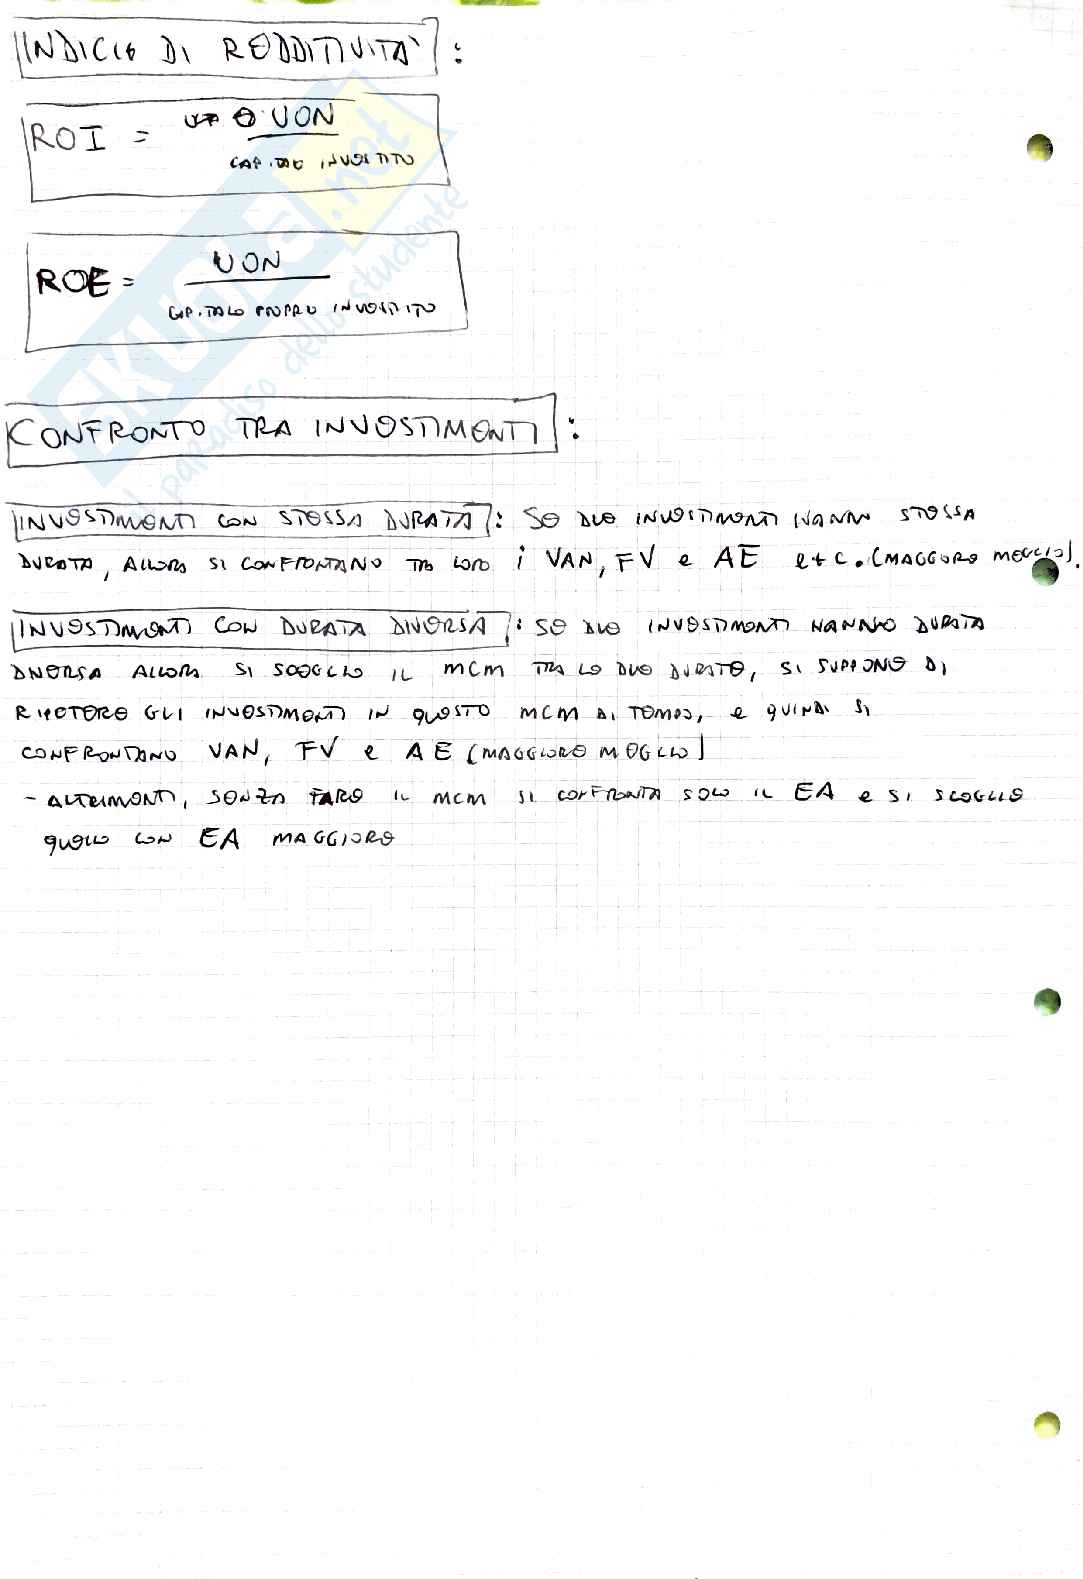 INDICIE DI REDDITIVITA' :
ROI = UON
CAPITALE INVESTITO
ROE = UON
CAPITALE PROPRIO INVESTITO
CONFRONTO TRA INVESTIMENTI :
INVESTIMENTI CON STESSA DURATA : SE DUE INVESTIMENTI HANNO STESSA
DURATA, ALLORA SI CONFRONTANO TRA LORO i VAN, FV e AE etc. (MAGGIORE MEGLIO).
INVESTIMENTI CON DURATA DIVERSA : SE DUE INVESTIMENTI HANNO DURATA
DIVERSA ALLORA SI SCEGLIE IL MCM TRA LE DUE DURATE, SI SUPPONE DI
RIPETERE GLI INVESTIMENTI IN QUESTO MCM DI TEMPO, e QUINDI SI
CONFRONTANO VAN, FV e AE (MAGGIORE MEGLIO)
- ALTRIMENTI, SENZA FARE IL MCM SI CONFRONTA SOLO IL EA e SI SCEGLIE
QUELLO CON EA MAGGIORE
SKUOLA.net
il paradiso dello studente